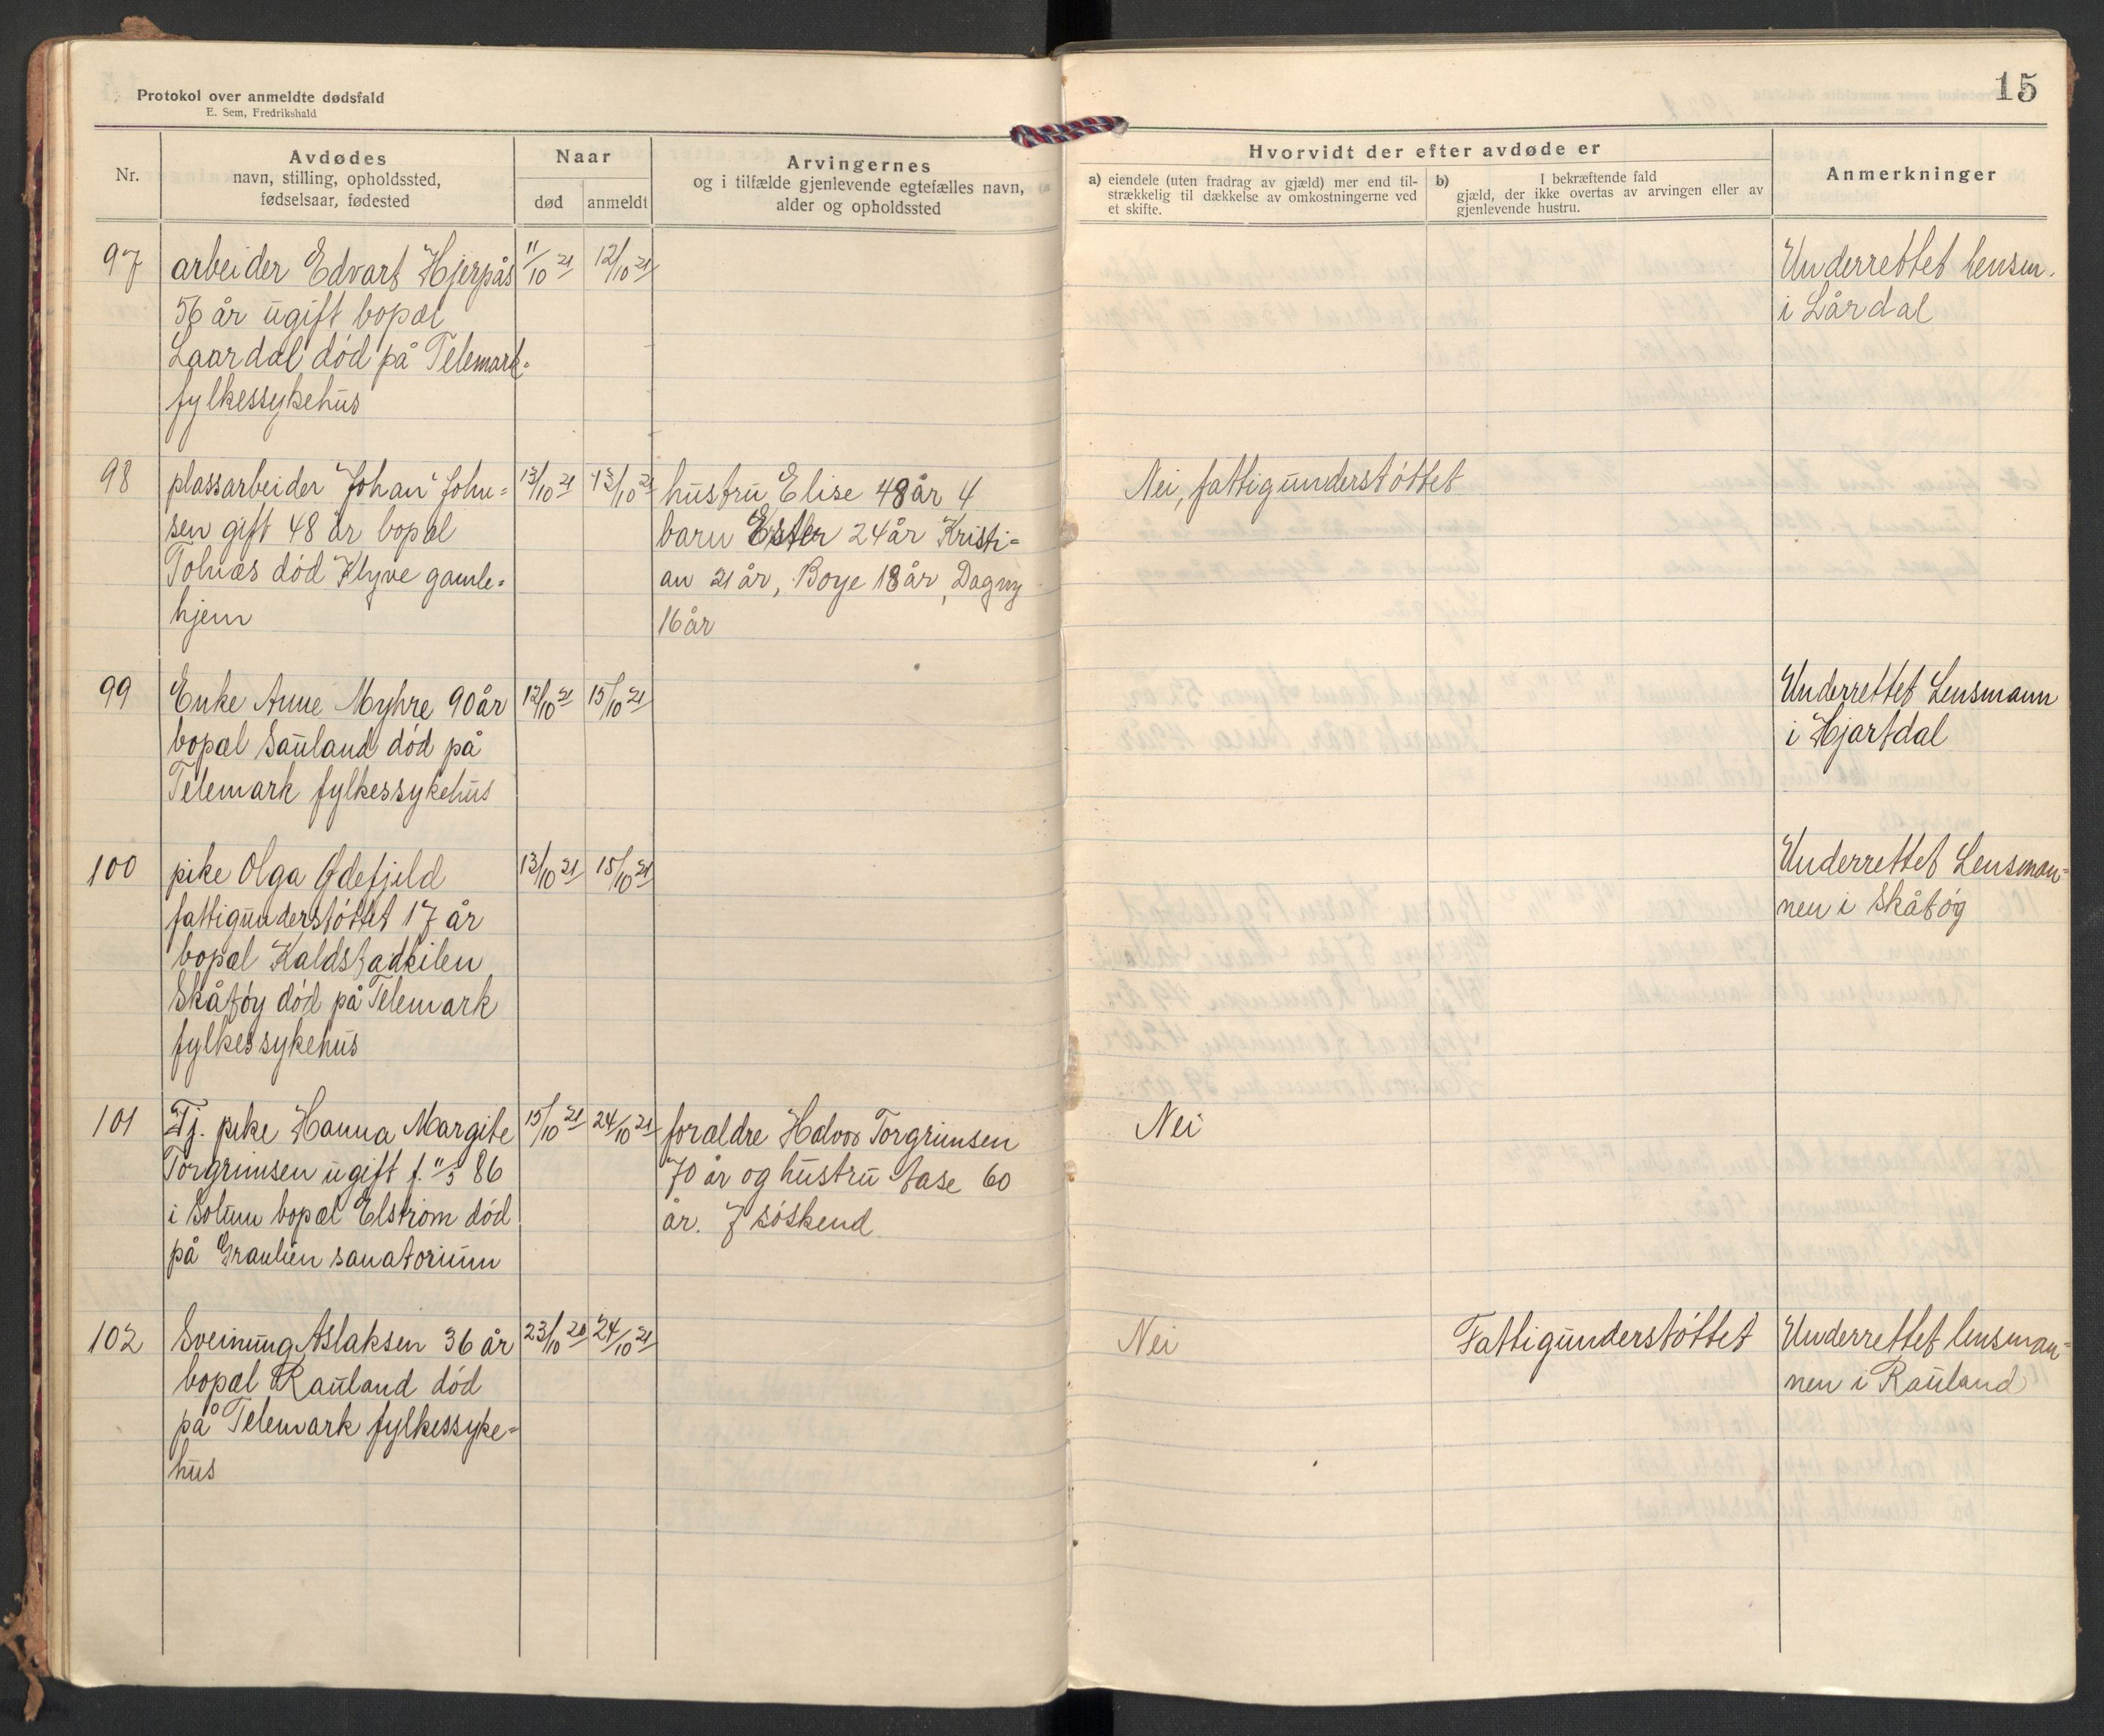 Protokol over anmeldte dødsfald
E. Sem, Fredrikshald
15
Nr.
Avdødes
navn, stilling, opholdssted,
fødselsaar, fødested
Naar
død
anmeldt
Arvingernes
og i tilfælde gjenlevende egtefælles navn,
alder og opholdssted
Hvorvidt der efter avdøde er
a) eiendele (uten fradrag av gjæld) mer end til-
strækkelig til dækkelse av omkostningerne ved
et skifte.
b) I bekræftende fald
gjæld, der ikke overtas av arvingen eller av
gjenlevende hustru.
Anmerkninger
97
arbeider Edvart Hjerpås
56 år ugift bopæl
Laardal død på Telemark-
fylkessykehus
11/10 21
12/10 21
Underrettet lensm.
i Lårdal
98
plassarbeider Johan John-
sen gift 48 år bopæl
Tolnæs død Klyve gamle-
hjem
13/10 21
13/10 21
hustru Elise 48 år 4
barn Ester 24 år Kristi-
an 21 år, Boye 18 år, Dagny
16 år
Nei, fattigunderstøttet
99
Enke Anne Myhre 90 år
bopæl Sauland død på
Telemark fylkessykehus
12/10 21
15/10 21
Underrettet Lensmann
i Hjartdal
100
pike Olga Ødefjeld
fattigunderstøttet 17 år
bopæl Kaldstadkilen
Skåtøy død på Telemark
fylkessykehus
13/10 21
15/10 21
Underrettet Lensman-
nen i Skåtøy
101
Tj. pike Hanna Margite
Torgrimsen ugift f. 11/5 86
i Solum bopæl Elstrøm død
på Granlien sanatorium
15/10 21
24/10 21
forældre Halvor Torgrimsen
70 år og hustru Aase 60
år. 7 søskend
Nei
102
Sveinung Aslaksen 36 år
bopæl Rauland død
på Telemark fylkessyke-
hus
23/10 20
24/10 21
Nei
Fattigunderstøttet
Underrettet lensman-
nen i Rauland